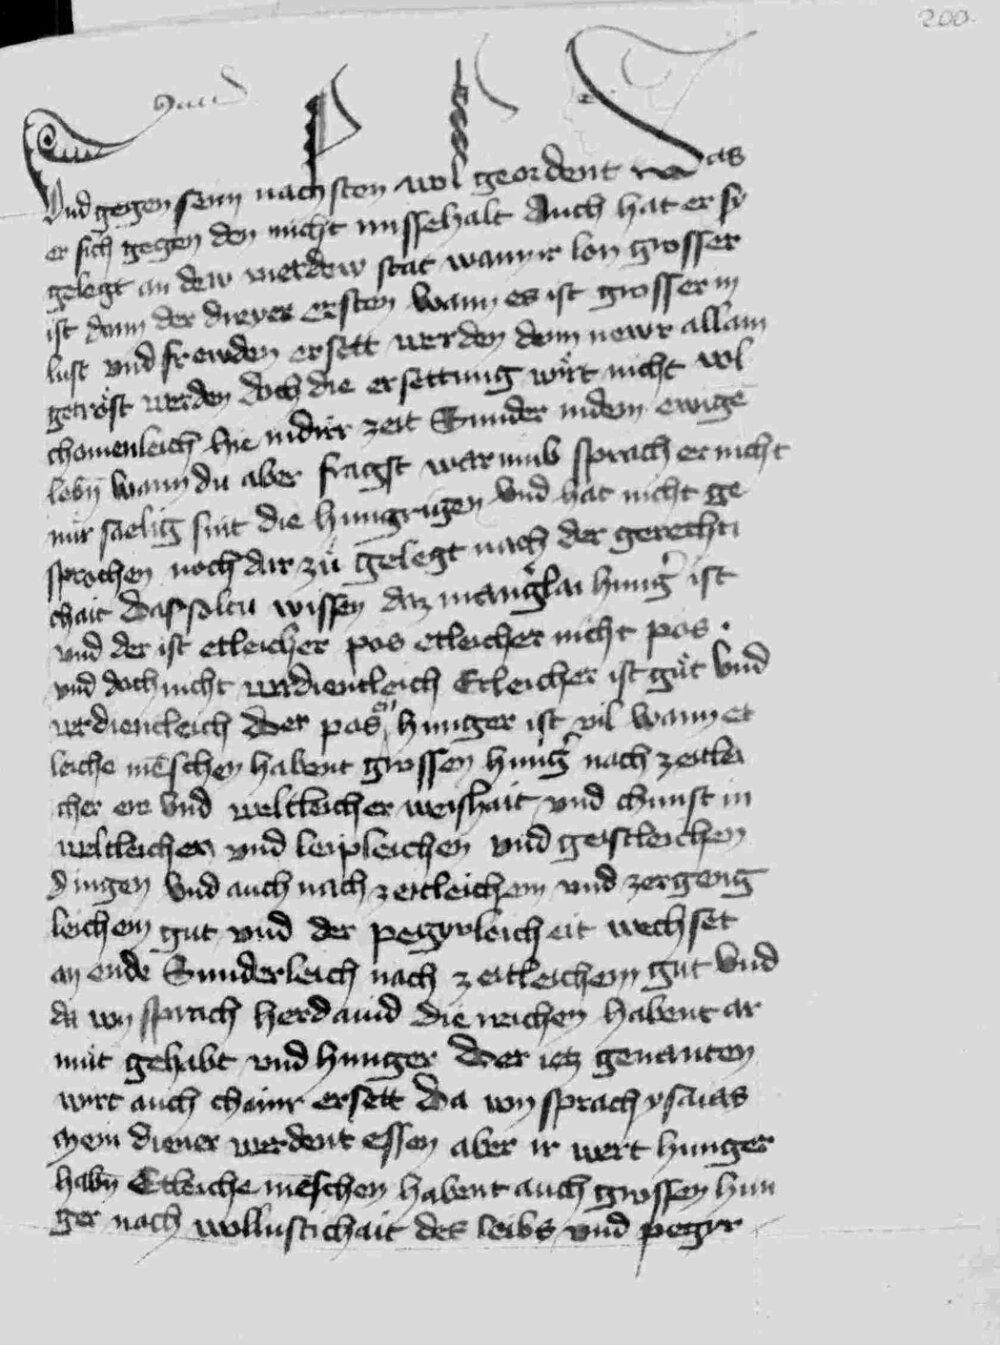 200
vnd gegen seim nachsten wol geordent was
er sich gegen den nicht missehalt Auch hat er sy
gelegt an dew vierdew stat wann ir lon grosser
ist dann der dreyer ersten wann es ist grosser in
lust vnd frewden ersett werden denn newr allain
getröst werden doch die ersettung wirt nicht vol
chomenleich hie in dirr zeit Sunder in dem ewigē
lebn̄ wann du aber fragst warumb sprach er nicht
nur saelig sint die hungrigen vnd hat nicht ge
sprochen noch dar zů gelegt nach der gerechti
chait Das soltu wissen daz manglai hung̉ ist
vnd der ist etleicher pös etleicher nicht pös .
vnd doch nicht verdientleich Etleicher ist gůt vnd
verdientleich Der pös en hunger ist vil wann et
leiche mēschen habent grossen hung̉ nach zeitlei
cher ere vnd weltleicher weishait vnd chunst in
weltleichen vnd leipleichen vnd geistleichen
dingen vnd auch nach zeitleichem vnd zergeng
leichem gut vnd der pegyrleicheit wechset
an ende Sunderleich nach zeitleichem gut vnd
da von sprach her dauid die reichen habent ar
můt gehabt vnd hunger Der ietz genanten
wirt auch chainr ersett Da von sprach ysaias
mein diener werdent essen aber ir wert hunger
habn̄ Etleiche mēschen habent auch grossen hun
ger nach wollustichait des leibs vnd pegyr